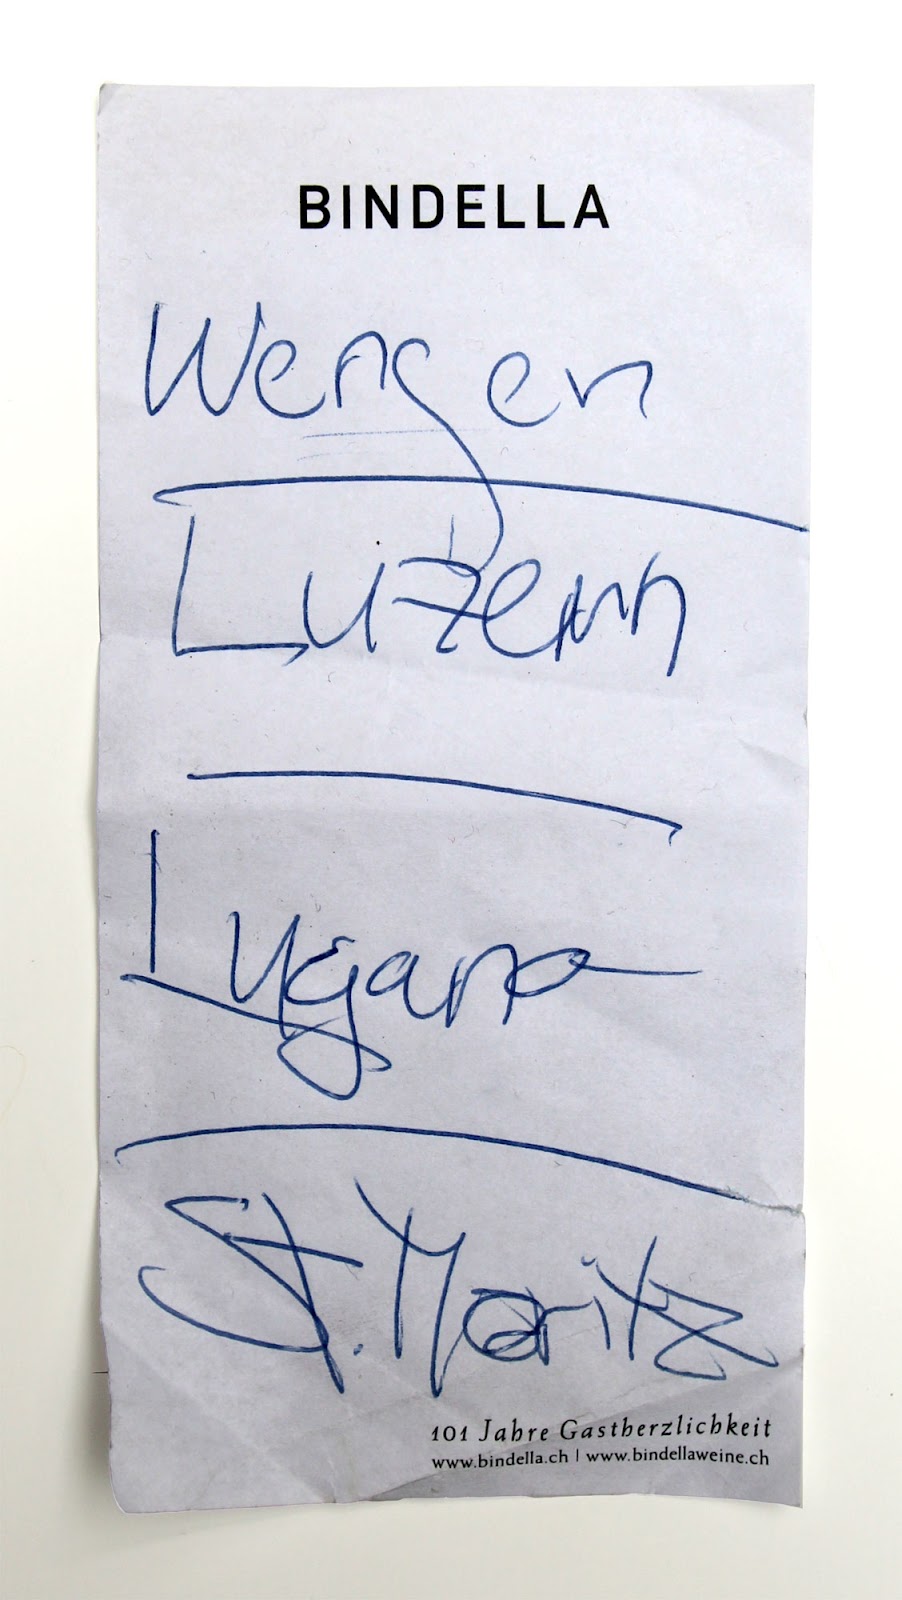 BINDELLA
Wengen
Luzern
Lugano
St. Moritz
101 Jahre Gastherzlichkeit
www.bindella.ch | www.bindellaweine.ch